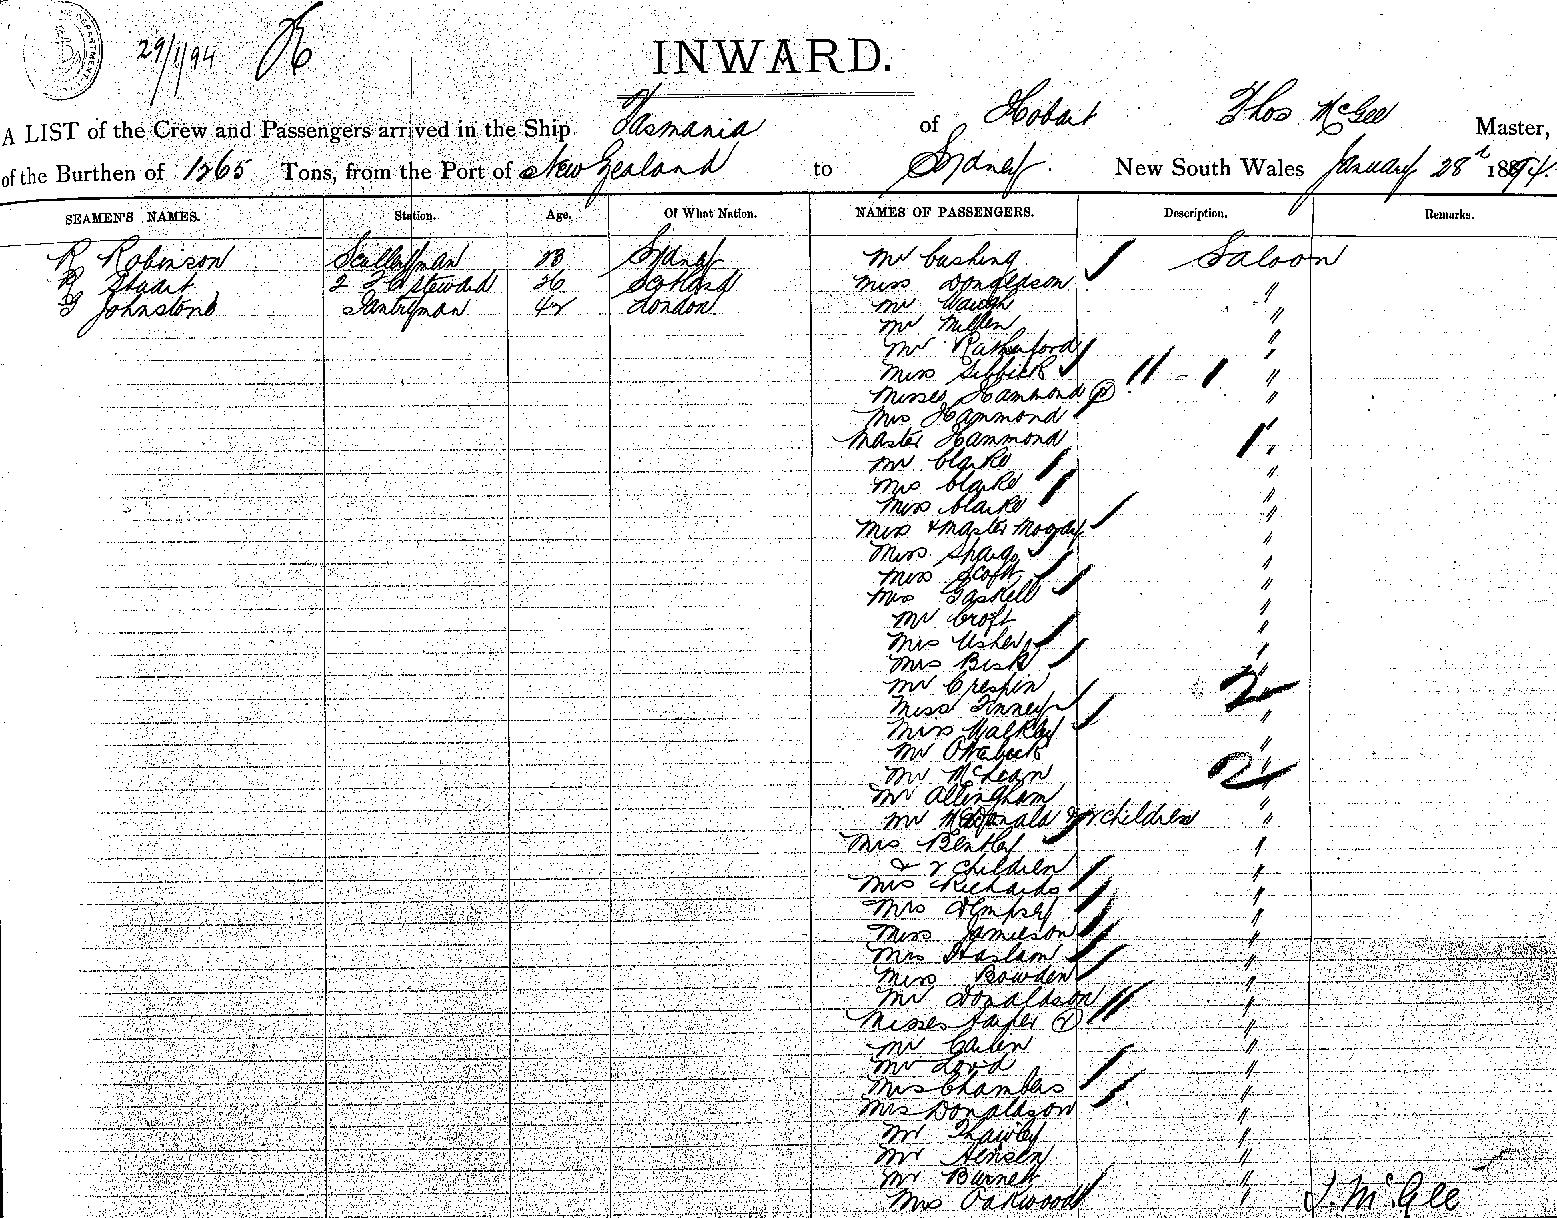 29/1/94
INWARD.
A LIST of the Crew and Passengers arrived in the Ship Tasmania of Hobart Thos McGee Master,
of the Burthen of 1265 Tons, from the Port of New Zealand to Sydney. New South Wales January 28th 1894.
SEAMEN'S NAMES. Station. Age. Of What Nation. NAMES OF PASSENGERS. Description. Remarks.
R Robinson Sculleryman Sydney Mr Cushing Saloon
Stuart 2 steward 26 Scotland Miss Donaldson "
Johnstone Pantryman 42 London Mr Waugh "
Mr Millen "
Mr Rutherford "
Miss "
Misses Hammond (2) "
Mrs Hammond
Master Hammond "
Mr Clarke "
Mrs Clarke "
Miss Clarke "
Miss & Master Moody "
Miss "
Miss Scott "
Mrs Gaskell "
Mr Croft "
Mrs Usher "
Mrs Bisk "
Mr Crespin 2
Miss Finney "
Miss Walkley "
Mr
Mr McLean 2 "
Mr Allingham "
Mr McDonald & 2 children "
Mrs Bentley "
& 2 children "
Mrs Richards "
Mrs Dempsey "
Miss Jamieson "
Mrs Haslam "
Miss Bowden "
Mr Donaldson "
Misses (2) "
Mr "
Mr Lord "
Mrs Chambers "
Mrs Donaldson "
Mr "
Mr Jensen "
Mr Burnett "
Mrs Oakwood " T. McGee